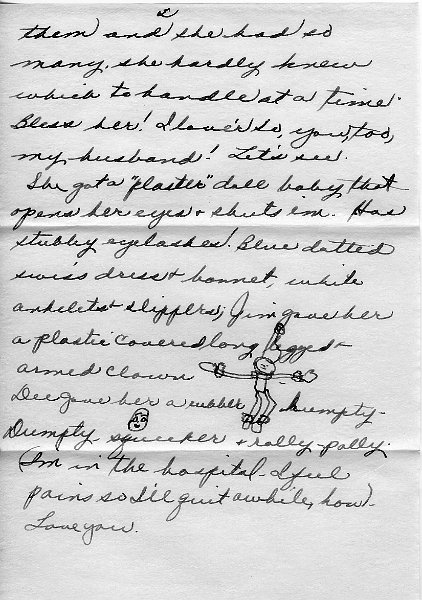 them and she had so
many, she hardly knew
which to handle at a time.
Bless her! I love'r so, you, too,
my husband! Let's see.
She got a "plaster" doll baby that
opens her eyes + shuts 'em. Has
stubby eyelashes! Blue dotted
swiss dress + bonnet, white
anklets + slippers; Jim gave her
a plastic covered long legged +
armed clown
Dee gave her a rubber humpty-
Dumpty-squeeker + rolly-polly.
I'm in the hospital - I feel
pains so I'll quit awhile, now.
Love you.